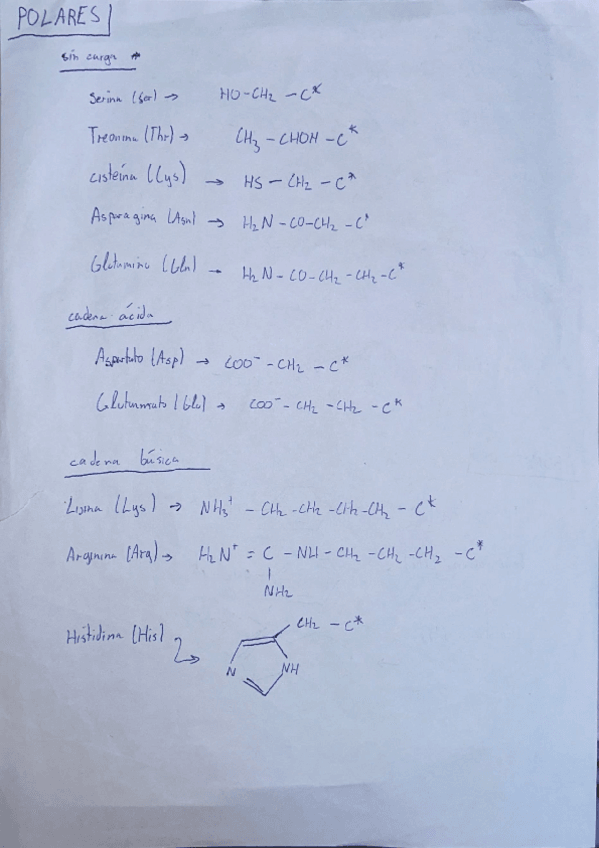 POLARES
sin carga *
Serina (Ser) → HO-CH2 - C*
Treonina (Thr) → CH3 - CHOH - C*
cisteína (Cys) → HS - CH2 - C*
Asparagina (Asn) → H2N - CO - CH2 - C*
Glutamina (Gln) → H2N - CO - CH2 - CH2 - C*
cadena ácida
Aspartato (Asp) → COO⁻ - CH2 - C*
Glutamato (Glu) → COO⁻ - CH2 - CH2 - C*
cadena básica
Lisina (Lys) → NH3⁺ - CH2 - CH2 - CH2 - CH2 - C*
Arginina (Arg) → H2N⁺ = C - NH - CH2 - CH2 - CH2 - C*
NH2
Histidina (His) → CH2 - C*
N NH